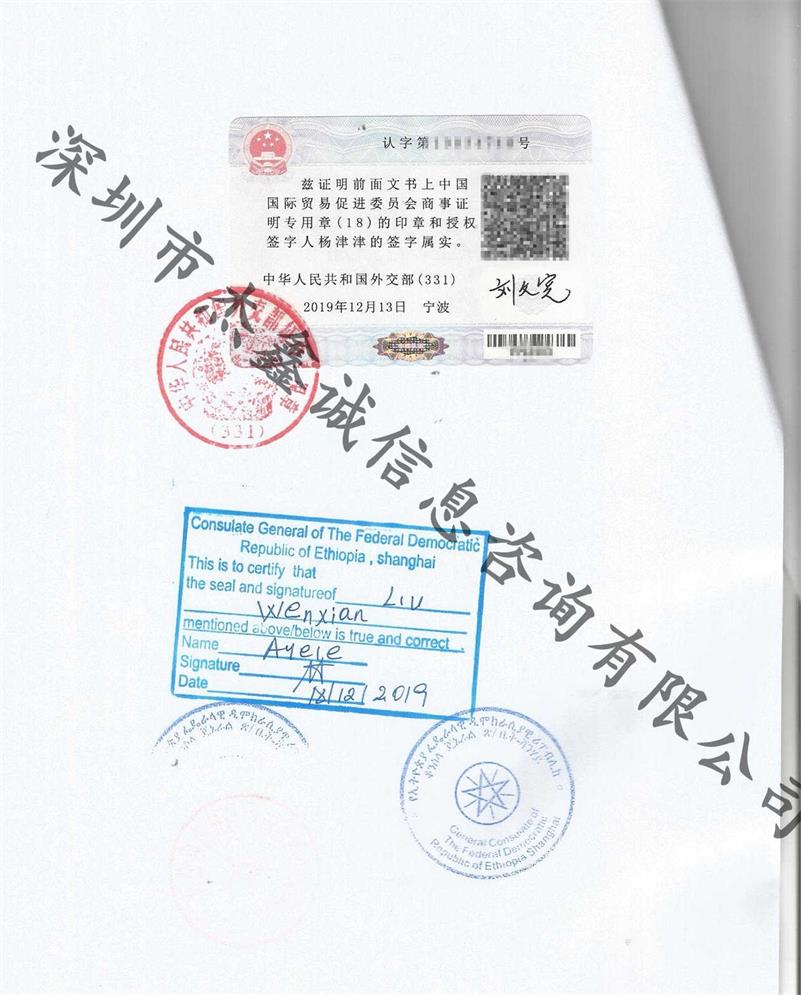 认字第 号
兹证明前面文书上中国
国际贸易促进委员会商事证
明专用章(18)的印章和授权
签字人杨津津的签字属实。
中华人民共和国外交部(331)
2019年12月13日 宁波
中华人民共和国
(331)
深圳市杰鑫诚信息咨询有限公司
Consulate General of The Federal Democratic
Republic of Ethiopia , shanghai
This is to certify that
the seal and signatureof Liu
Wenxian
mentioned above/below is true and correct .
Name Ayele
Signature
Date 18/12/2019
General Consulate of
The Federal Democratic
Republic of Ethiopia Shanghai